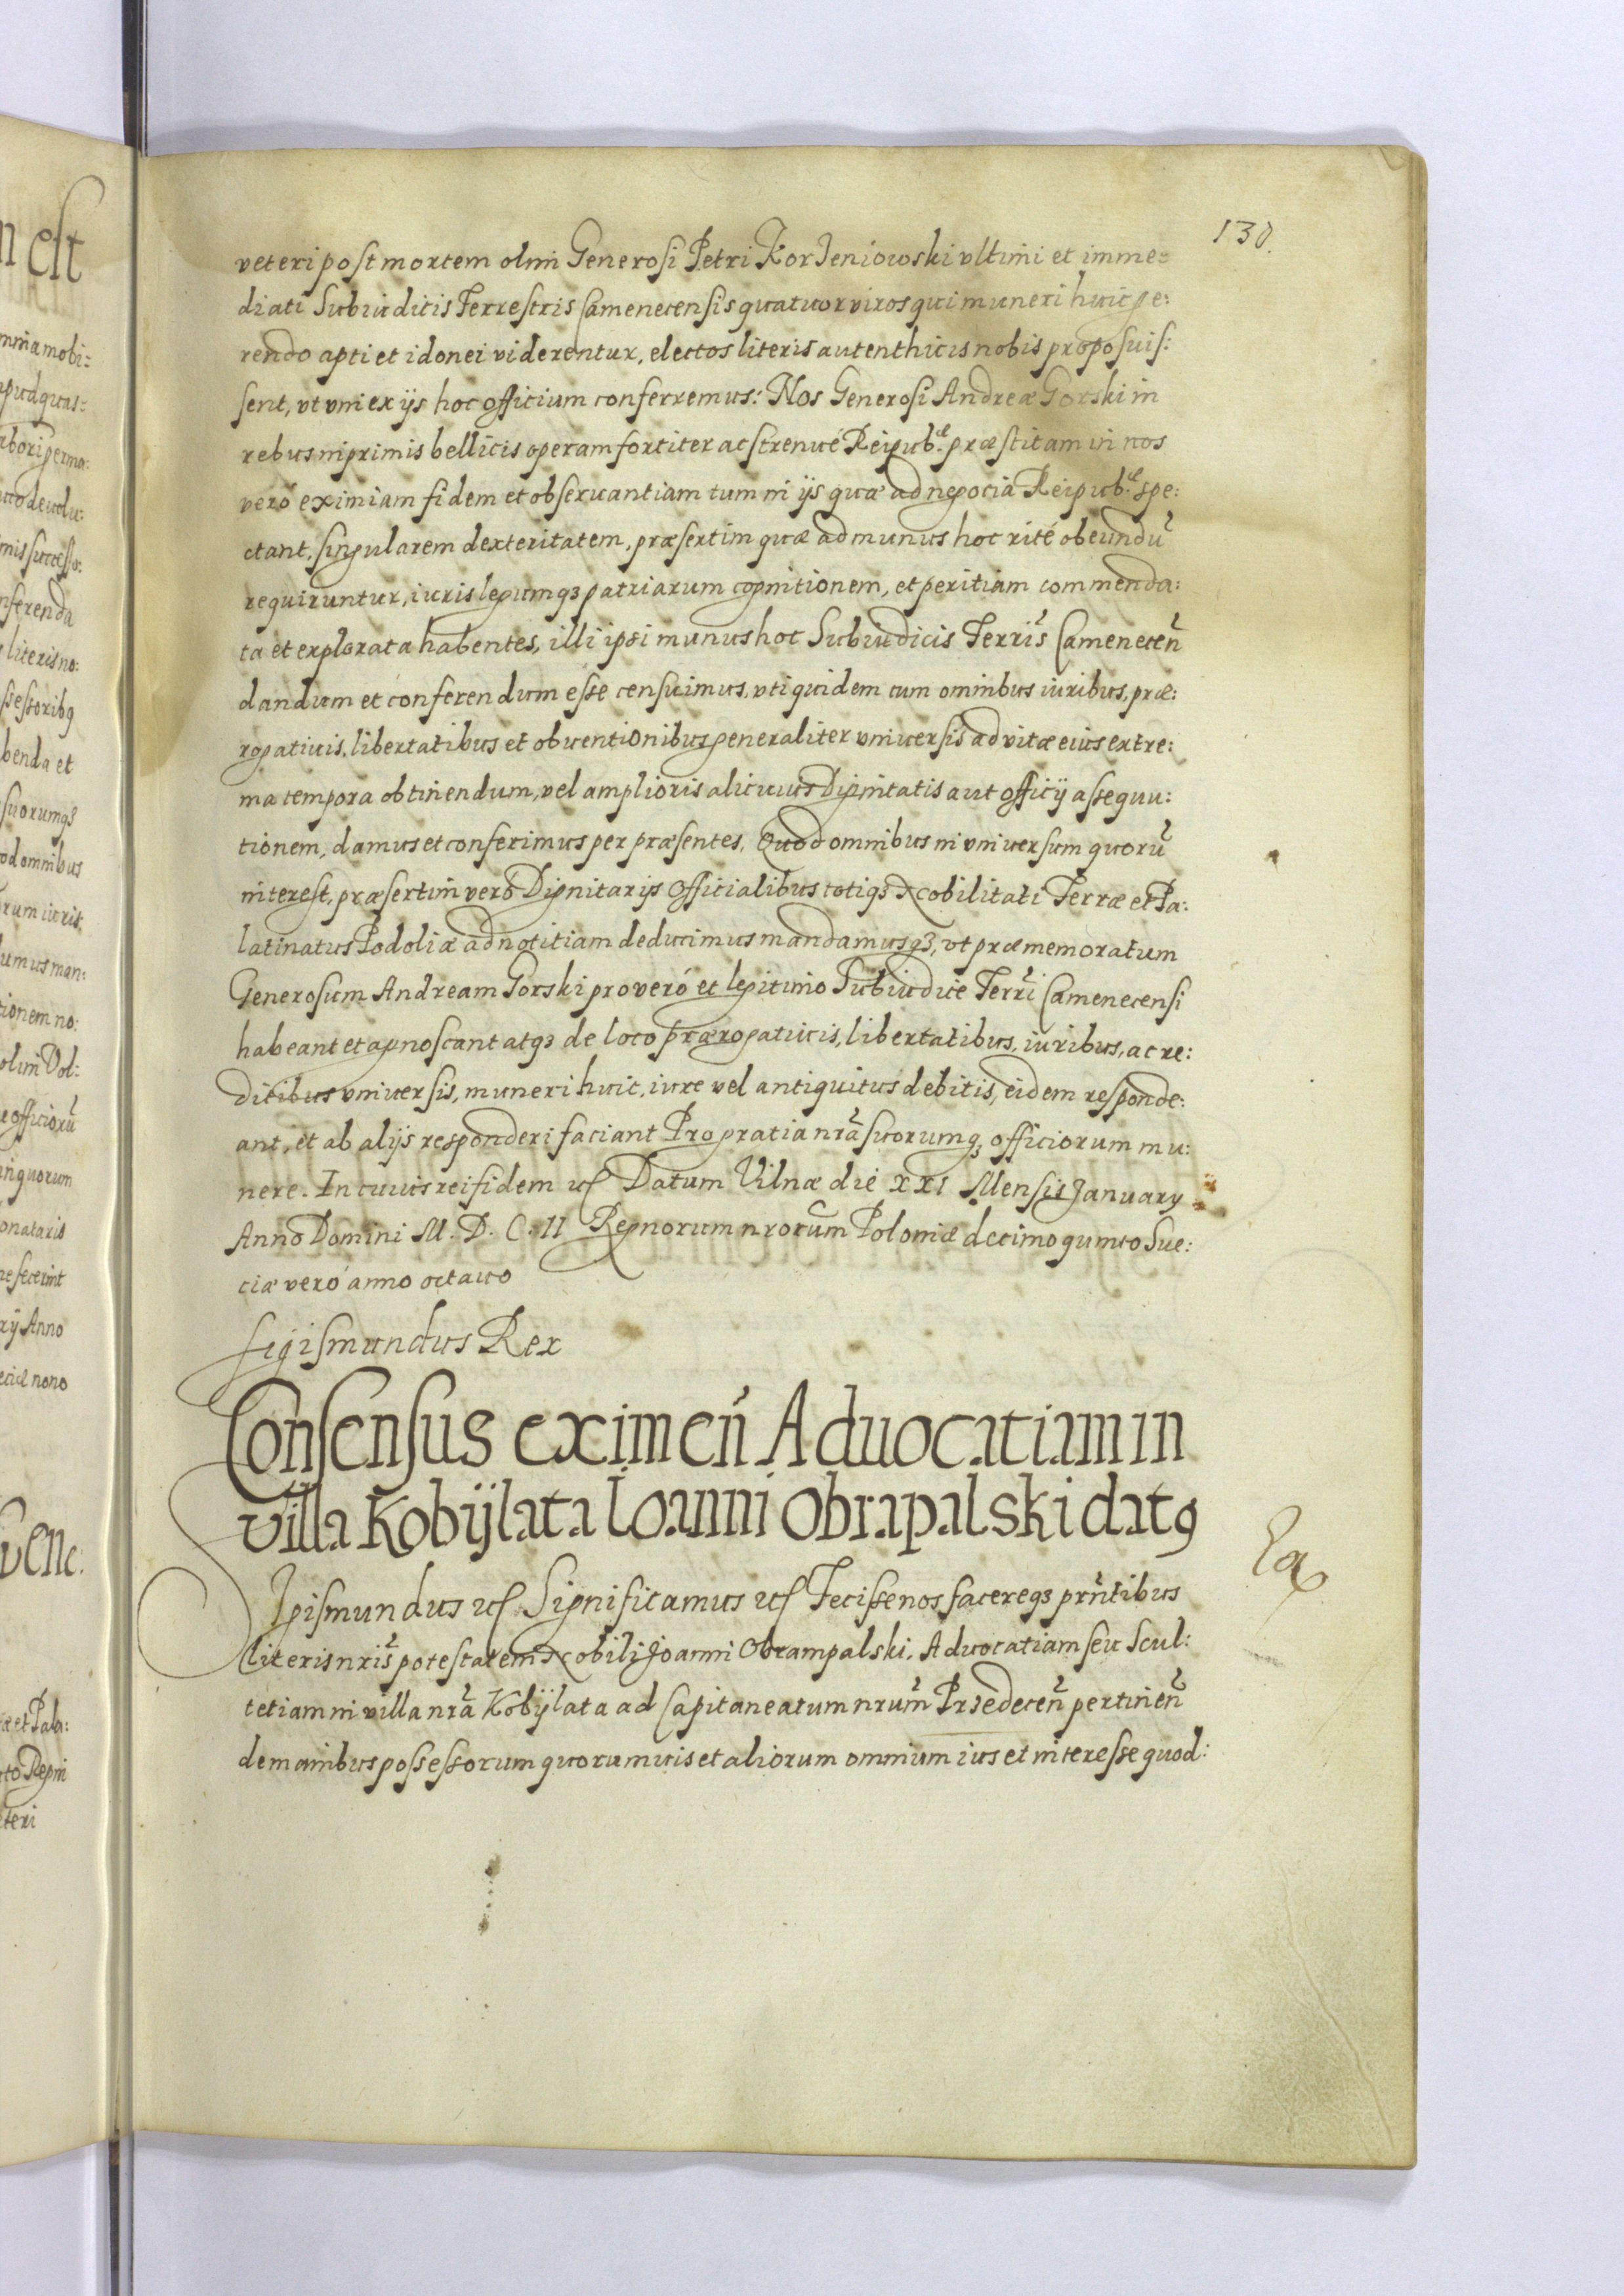 130.
veteri post mortem olim Generosi Petri Korzeniowski vltimi et imme=
diati Subiudicis Terrestris Camenecensis quatuor viros qui muneri huic ge:
rendo apti et idonei viderentur, electos literis autenthicis nobis proposuis:
sent, vt vni ex ijs hoc officium conferremus: Nos Generosi Andreæ Gorski in
rebus inprimis bellicis operam fortiter ac strenué Reipub.æ præstitam in nos
veró eximiam fidem et obseruantiam tum in ijs quæ ad negocia Reipub.æ spe:
ctant, singularem dexteritatem, præsertim quæ ad munus hoc rité obeundū
requiruntur, iuris legumqꝫ patriarum cognitionem, et peritiam commenda:
ta et explorata habentes, illi ipsi munus hoc Subiudicis Terris̃ Camenecen̄
dandum et conferendum esse censuimus, vti quidem cum omnibus iuribus, præ:
rogatiuis, libertatibus et obuentionibus generaliter vniuersis ad vitæ eius extre:
ma tempora obtinendum, vel amplioris alicuius Dignitatis aut officij assequu:
tionem, damus et conferimus per præsentes, Quod omnibus in vniuersum quorū
interest, præsertim veró Dignitarijs Officialibus totiqꝫ Nobilitati Terræ et Pa:
latinatus Podoliæ ad notitiam deducimus mandamusqꝫ, vt præmemoratum
Generosum Andream Gorski pro veró et legitimo Subiudice Terrī Camenecensi
habeant et agnoscant atqꝫ de loco prærogatiuis, libertatibus, iuribus, ac re:
ditibus vniuersis, muneri huic, iure vel antiquitus debitis, eidem responde:
ant, et ab alijs responderi faciant Pro gratia nrā suorumqꝫ officiorum mu:
nere. In cuius rei fidem etc Datum Vilnæ die XXI Mensis January
Anno Domini M. D. C. II Regnorum nrorūm Poloniæ decimo quinto Sue:
ciæ veró anno octauo
Sigismundus Rex
Consensus eximen̄ Aduocatiam in
villa Kobÿlata Ioanni Obrapalski datꝯ
Sigismundus etc Significamus etc Fecisse nos facereqꝫ prn̄tibus
literis nris̃ potestatem Nobili Joanni Obrampalski, Aduocatiam seu Scul:
tetiam in villa nrā Kobÿlata ad Capitaneatum nrum̄ Przedecen̄ pertinen̄
de manibus possessorum quorumuis et aliorum omnium ius et interesse quod: